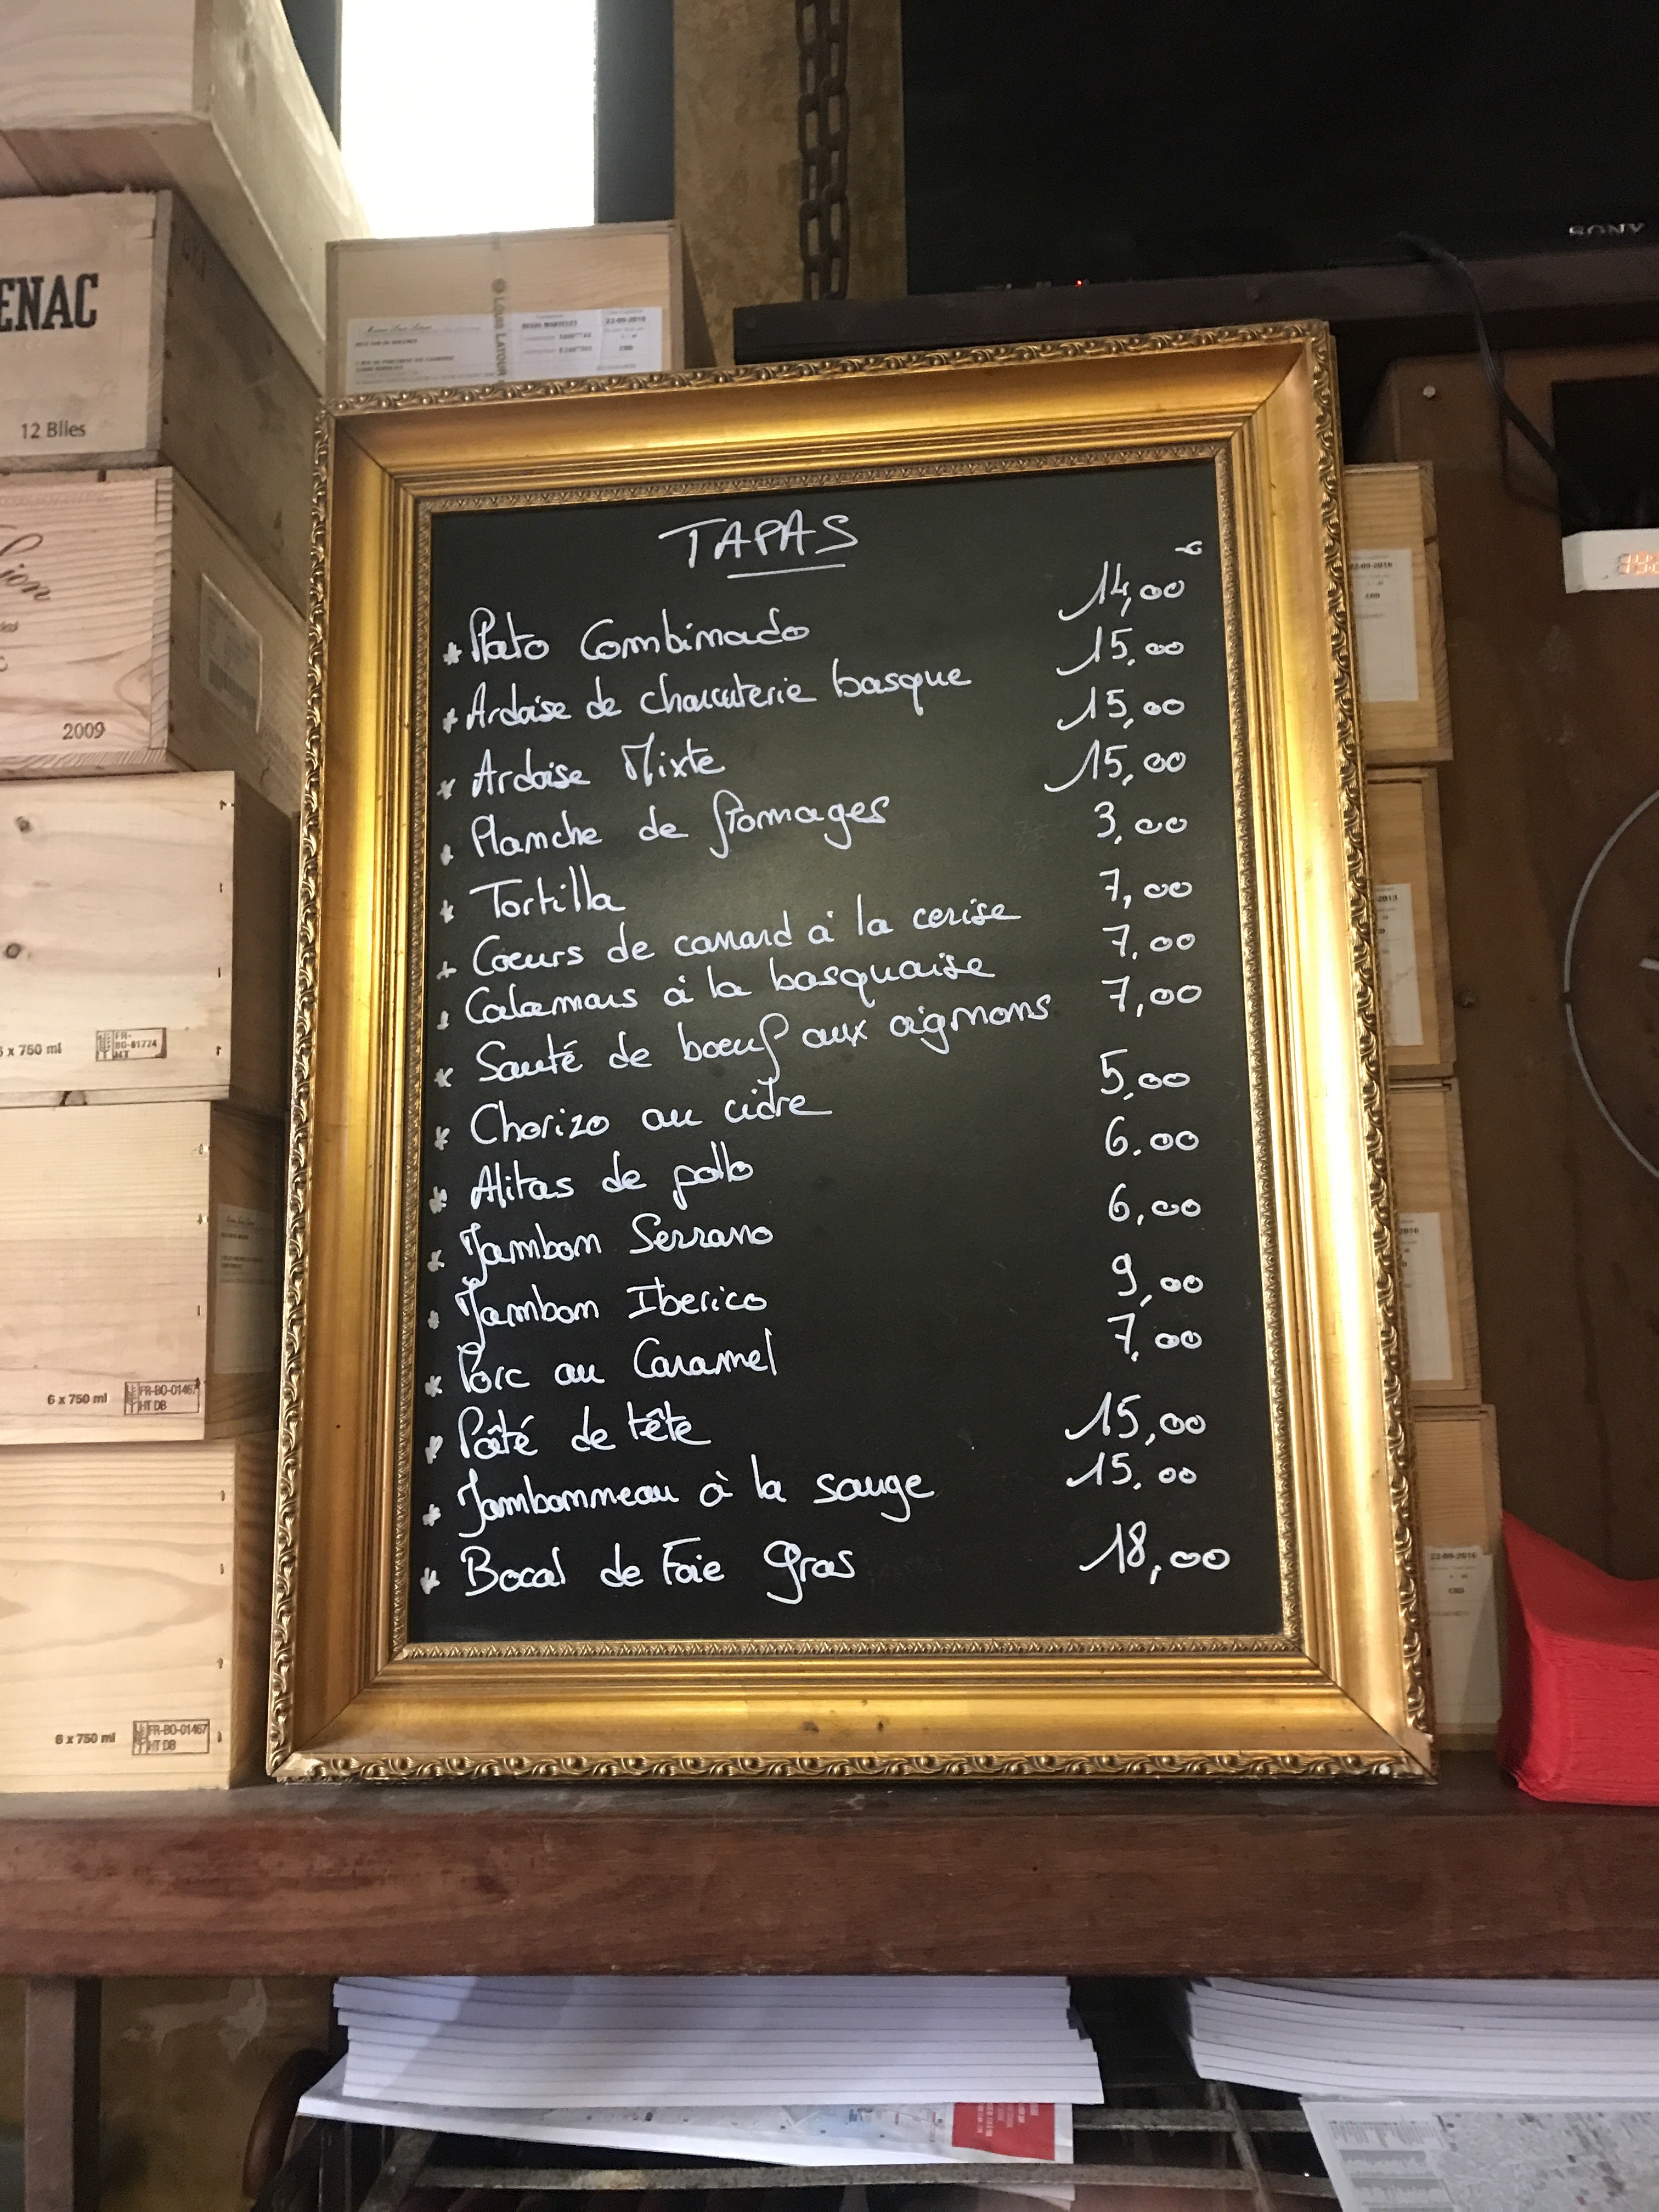 ENAC
12 Blles
2009
6 x 750 ml
FR-
BO-01774
6 x 750 ml
FR-BO-01467
HT DB
6 x 750 ml
FR-BO-01467
HT DB
LOUIS LATOUR
22-09-2016
SONY
TAPAS
€
* Plato Combinado 14,00
* Ardoise de charcuterie basque 15,00
* Ardoise Mixte 15,00
* Planche de fromages 15,00
* Tortilla 3,00
* Coeurs de canard à la cerise 7,00
* Calamars à la basquaise 7,00
* Sauté de boeuf aux oignons 7,00
* Chorizo au cidre 5,00
* Alitas de pollo 6.00
* Jambon Serrano 6,00
* Jambon Iberico 9,00
* Porc au Caramel 7,00
* Pâté de tête 15,00
* Jambonneau à la sauge 15.00
* Bocal de Foie gras 18,00
22-09-2016
22-09-2016